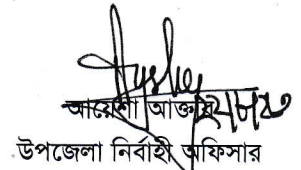 আয়েশা আক্তার
উপজেলা নির্বাহী অফিসার